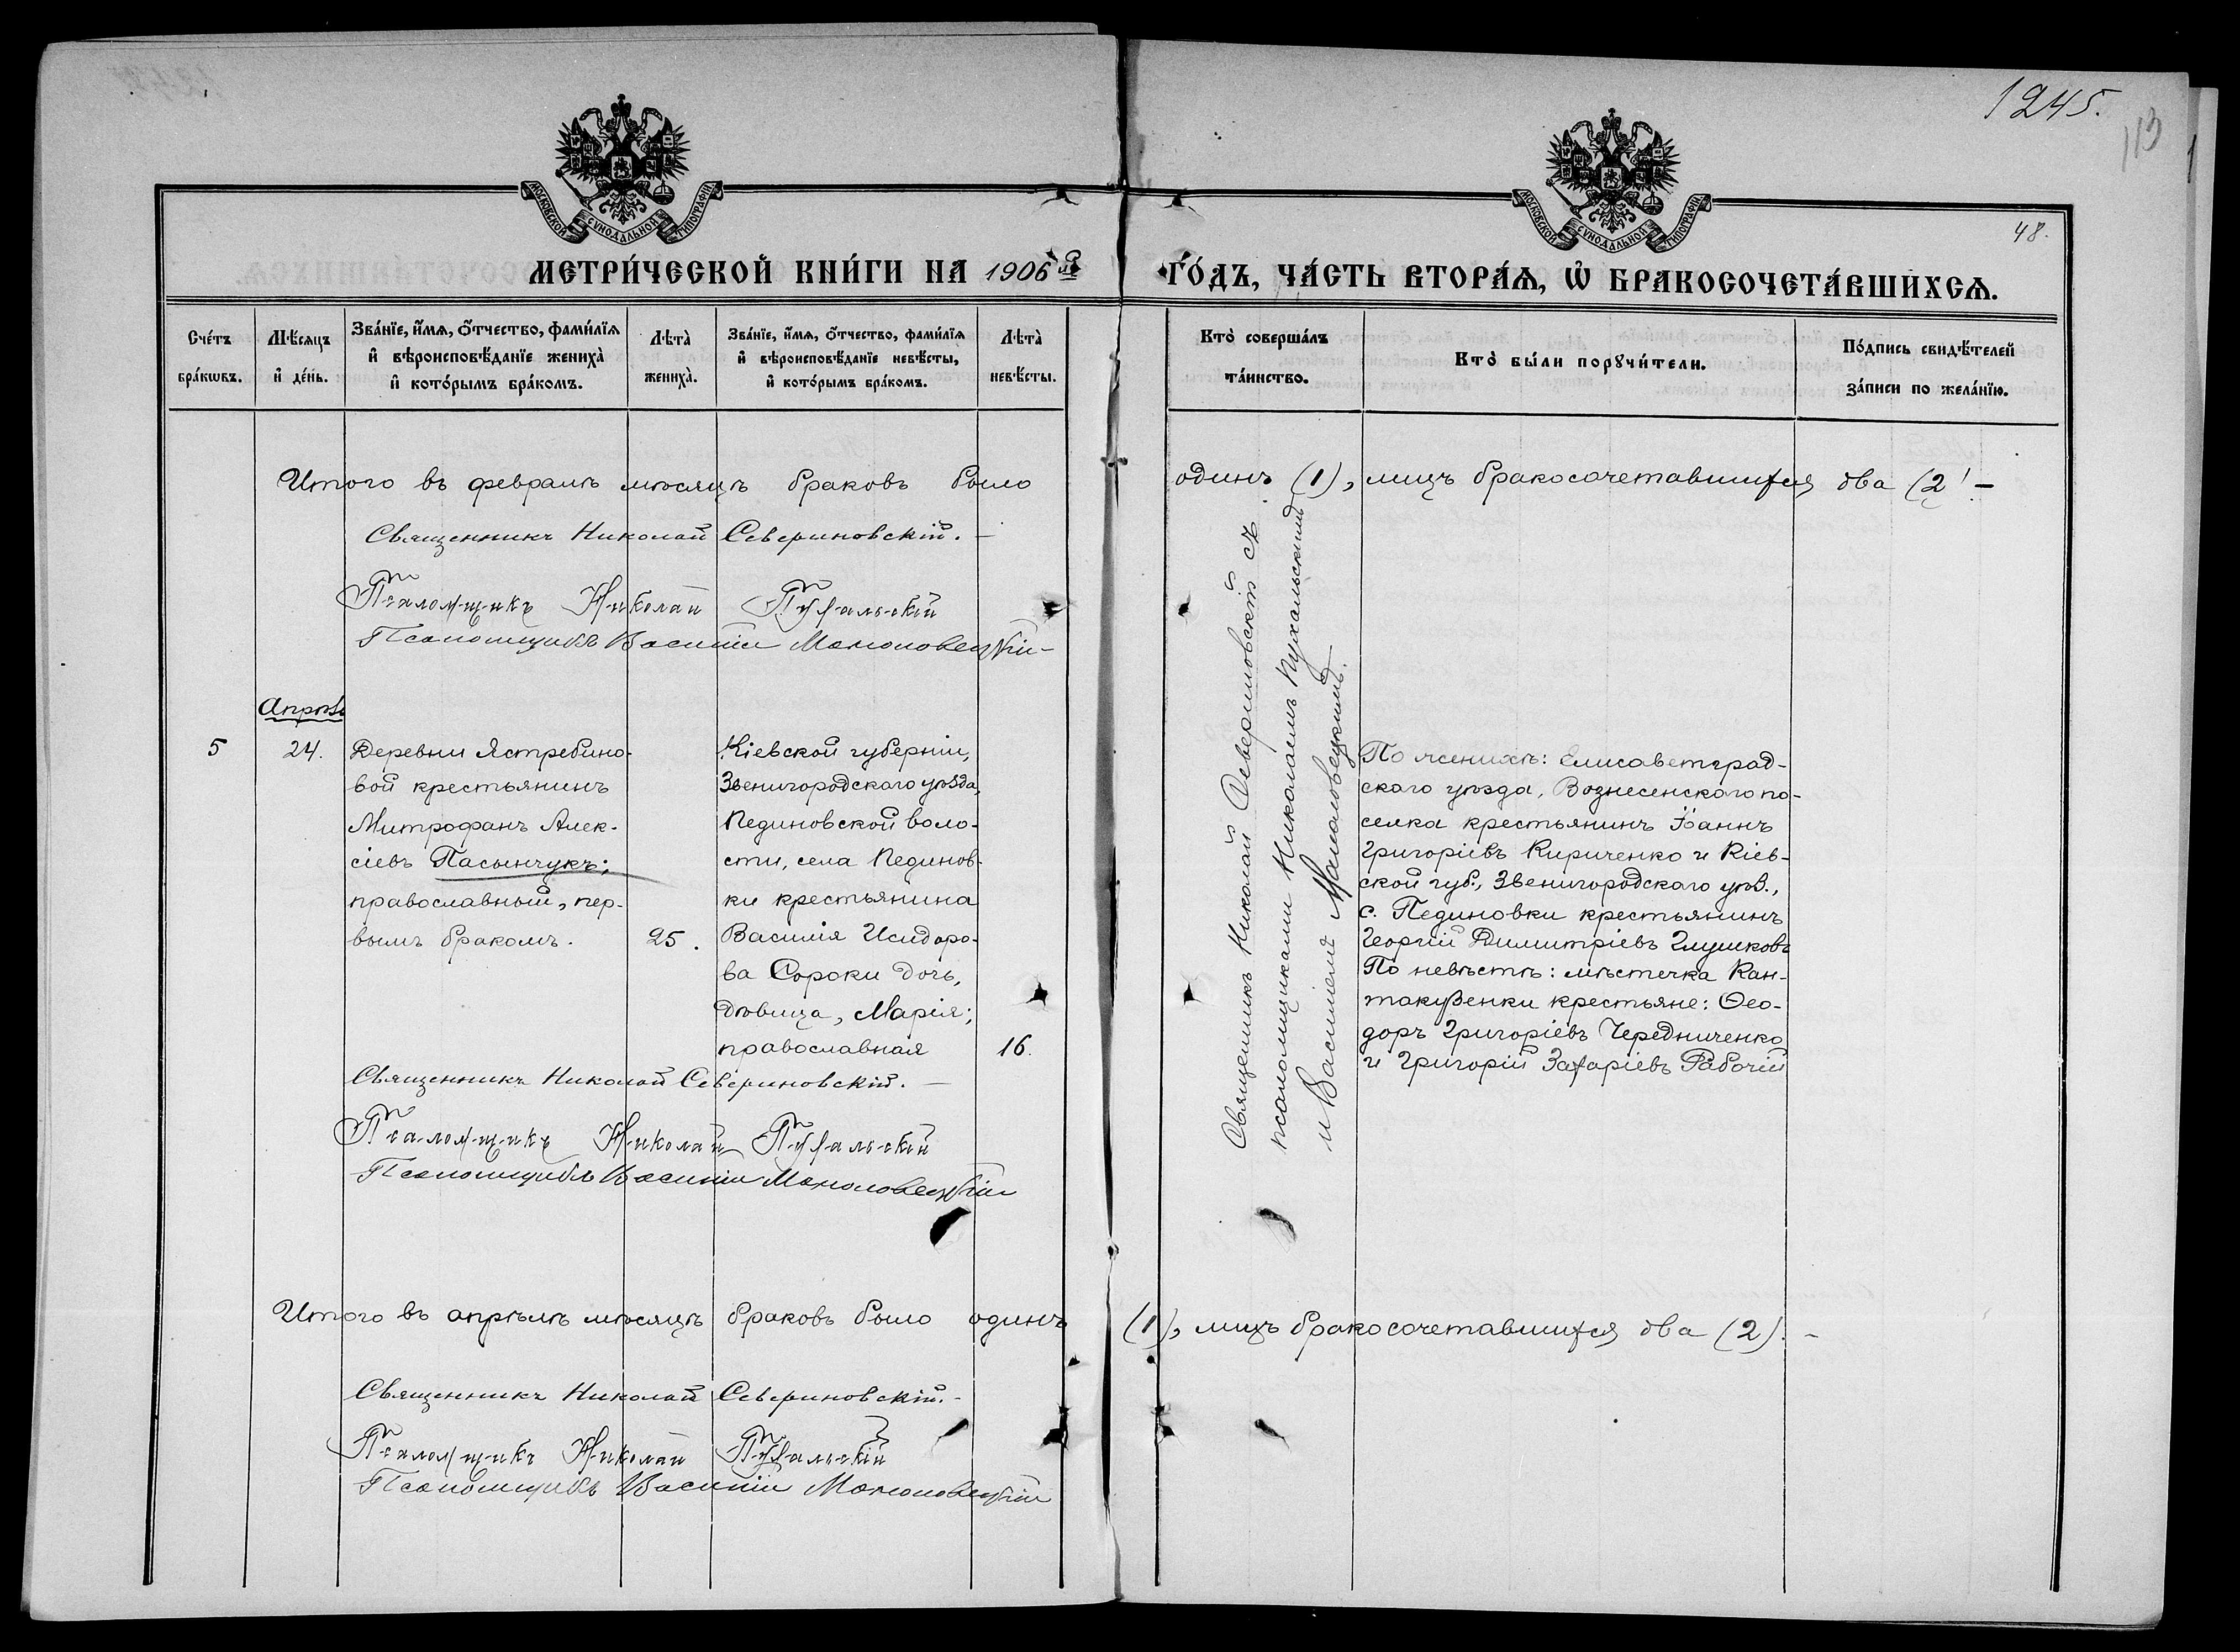 1245.
113
48.
МОСКОВСКОЙ СѴНОДАЛЬНОЙ ТИПОГРАФІИ
МОСКОВСКОЙ СѴНОДАЛЬНОЙ ТИПОГРАФІИ
МЕТРИ́ЧЕСКОЙ КНИ́ГИ НА 1906й ГО́ДЪ, ЧА́СТЬ ВТОРА́Ѧ, Ѽ БРАКОСОЧЕТА́ВШИХСѦ.
Сче́тъ
бра́кѡвъ.
Мѣ́сяцъ
и҆ де́нь.
Зва́нїе, и҆́мѧ, ѻ҆́тчество, фами́лїѧ
и҆ вѣроисповѣ́данїе жениха̀
и҆ кото́рымъ бра́комъ.
Лѣта̀
жениха̀.
Зва́нїе, и҆́мѧ, ѻ҆́тчество, фами́лїѧ
и҆ вѣроисповѣ́данїе невѣ́сты,
и҆ кото́рымъ бра́комъ.
Лѣта̀
невѣ́сты.
Кто̀ соверша́лъ
та́инство.
Кто̀ бы́ли порꙋчи́тели.
По́дпись свидѣ́телей
за́писи по жела́нїю.
Итого въ февралѣ мѣсяцѣ браковъ было одинъ (1), лицъ бракосочетавшихся два (2). –
Священникъ Николай Севериновскій. –
Псаломщикъ Николай Пухальскій
Псаломщикъ Василій Мамоловецкій –
Апрѣль
5
24.
Деревни Ястребино-
вой крестьянинъ
Митрофанъ Алек-
сіевъ Пасынчукъ;
православный, пер-
вымъ бракомъ.
25.
Кіевской губерніи,
Звенигородскаго уѣзда,
Пединовской воло-
сти, села Пединов-
ки крестьянина
Василія Исидоро-
ва Сороки дочь,
дѣвица, Марія;
православная
16.
Священникъ Николай Севериновскій съ
псаломщиками Николаемъ Пухальскимъ
и Василіемъ Мамаловецкимъ.
По женихѣ: Елисаветград-
скаго уѣзда, Вознесенскаго по-
селка крестьянинъ Іоаннъ
Григоріевъ Кириченко и Кіев-
ской губ., Звенигородскаго уѣз.,
с. Пединовки крестьянинъ
Георгій Димитріевъ Глушковъ
По невѣстѣ: мѣстечка Кан-
такузенки крестьяне: Ѳео-
доръ Григоріевъ Чередниченко
и Григорій Захаріевъ Рабочій
Священникъ Николай Севериновскій. –
Псаломщикъ Николай Пухальскій
Псаломщикъ Василій Мамоловецкій
Итого въ апрѣлѣ мѣсяцѣ браковъ было одинъ (1), лицъ бракосочетавшихся два (2). –
Священникъ Николай Севериновскій. –
Псаломщикъ Николай Пухальскій
Псаломщикъ Василій Мамоловецкій